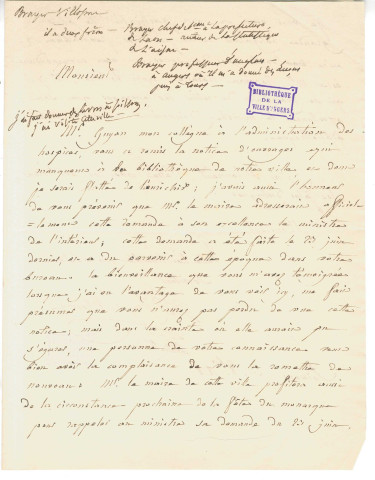 Brayer Villesson
il a deux frères
Brayer chef de à la préfecture
de Laon - auteur de la statistique
de l'aisne
Brayer professeur d'anglais
à angers où il m'a donné des leçons
puis à Tours
Monsieur
j'ai fait
BIBLIOTHÈQUE
DE LA
VILLE D'ANGERS
Mr. Guyon mon collègue à l'administration des
hospices, vous a remis la notice d'ouvrages qui
manquent à la bibliothèque de notre ville et dont
je serais flatté de l'enrichir; j'avais aussi l'honneur
de vous prévenir que Mr. le maire adresserait officiel-
lement cette demande à son excellence le ministre
de l'intérieur; cette demande a été faite le 23 juin
dernier, et a dû parvenir à cette époque dans votre
bureau. la bienveillance que vous m'avez témoignée
lorsque j'ai eu l'avantage de vous voir, me fait
présumer que vous n'aurez pas perdu de vue cette
notice; mais dans la crainte où elle aurait pu
s'égarer, une personne de votre connaissance veut
bien avoir la complaisance de vous la remettre de
nouveau. Mr. le maire de cette ville profitera aussi
de la circonstance prochaine de la fête du monarque
pour rappeler au ministre sa demande du 23 juin.